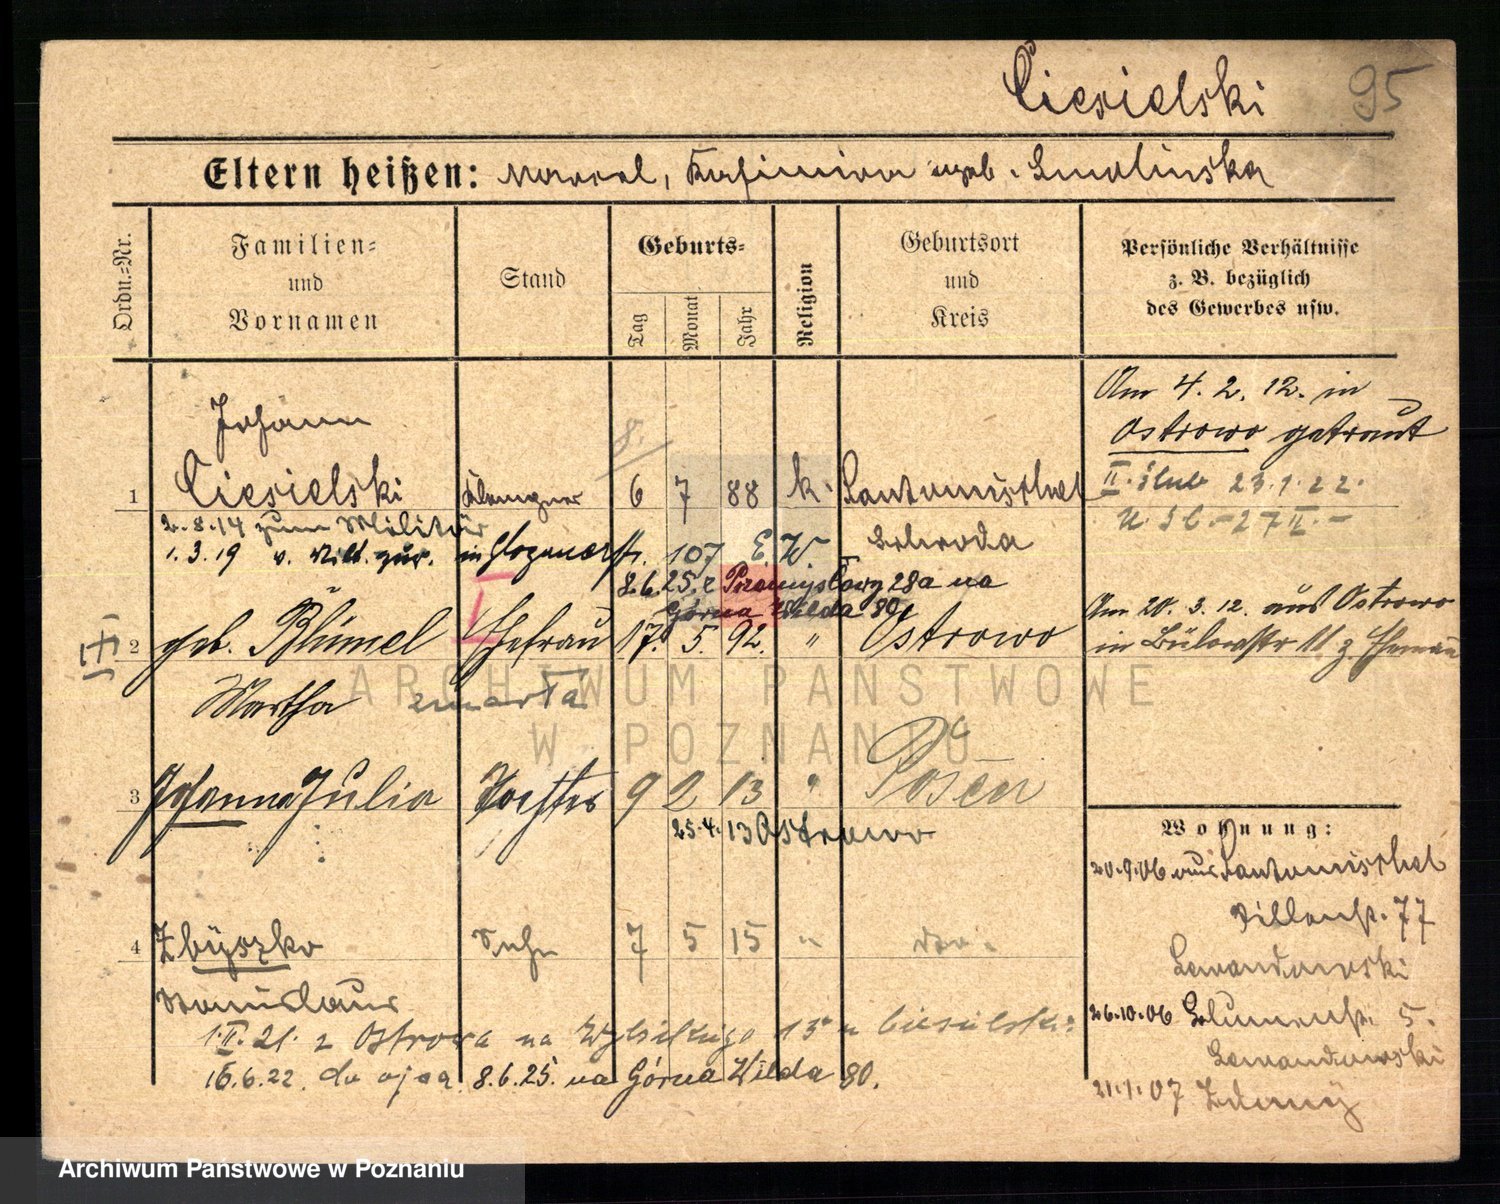 Ciesielski 95
Eltern heißen: Marcel, Kasimira geb. Smolinska
Ordn.=Nr.
Familien=
und
Vornamen
Stand
Geburts=
Tag
Monat
Jahr
Religion
Geburtsort
und
Kreis
Persönliche Verhältnisse
z. B. bezüglich
des Gewerbes usw.
Johann
1 Ciesielski Klempner 6 7 88 k. Santomischel
Schroda
2.8.14 zum Militär
1.3.19 v. Milt. zur. in Glogauerstr. 107 E W
8.6.25. z Przemysłowy 28a na
Górna Wilda 80
2 geb. Blümel Ehefrau 17. 5. 92. " Ostrowo
Martha zmarła
3 Johanna Julia Tochter 9 2 13 " Posen
25.4.13 Ostrowo
4 Zbyszko Sohn 7 5 15 " do.
Stanislaus
1.II.21. z Ostrowa na 13 u Ciesielski
16.6.22. do ojca 8.6.25. na Górna Wilda 80.
Am 4. 2. 12. in
Ostrowo getraut
II. ślub 23.1.22.
27 II. -
Am 20. 3. 12. aus Ostrowo
in Bülowstr 11 z. Ehemann
Wohnung:
20.9.06 aus Santomischel
77
Lewandowski
26.10.06 Blumenstr. 5.
Lewandowski
21.1.07
ARCHIWUM PAŃSTWOWE
W POZNANIU
Archiwum Państwowe w Poznaniu